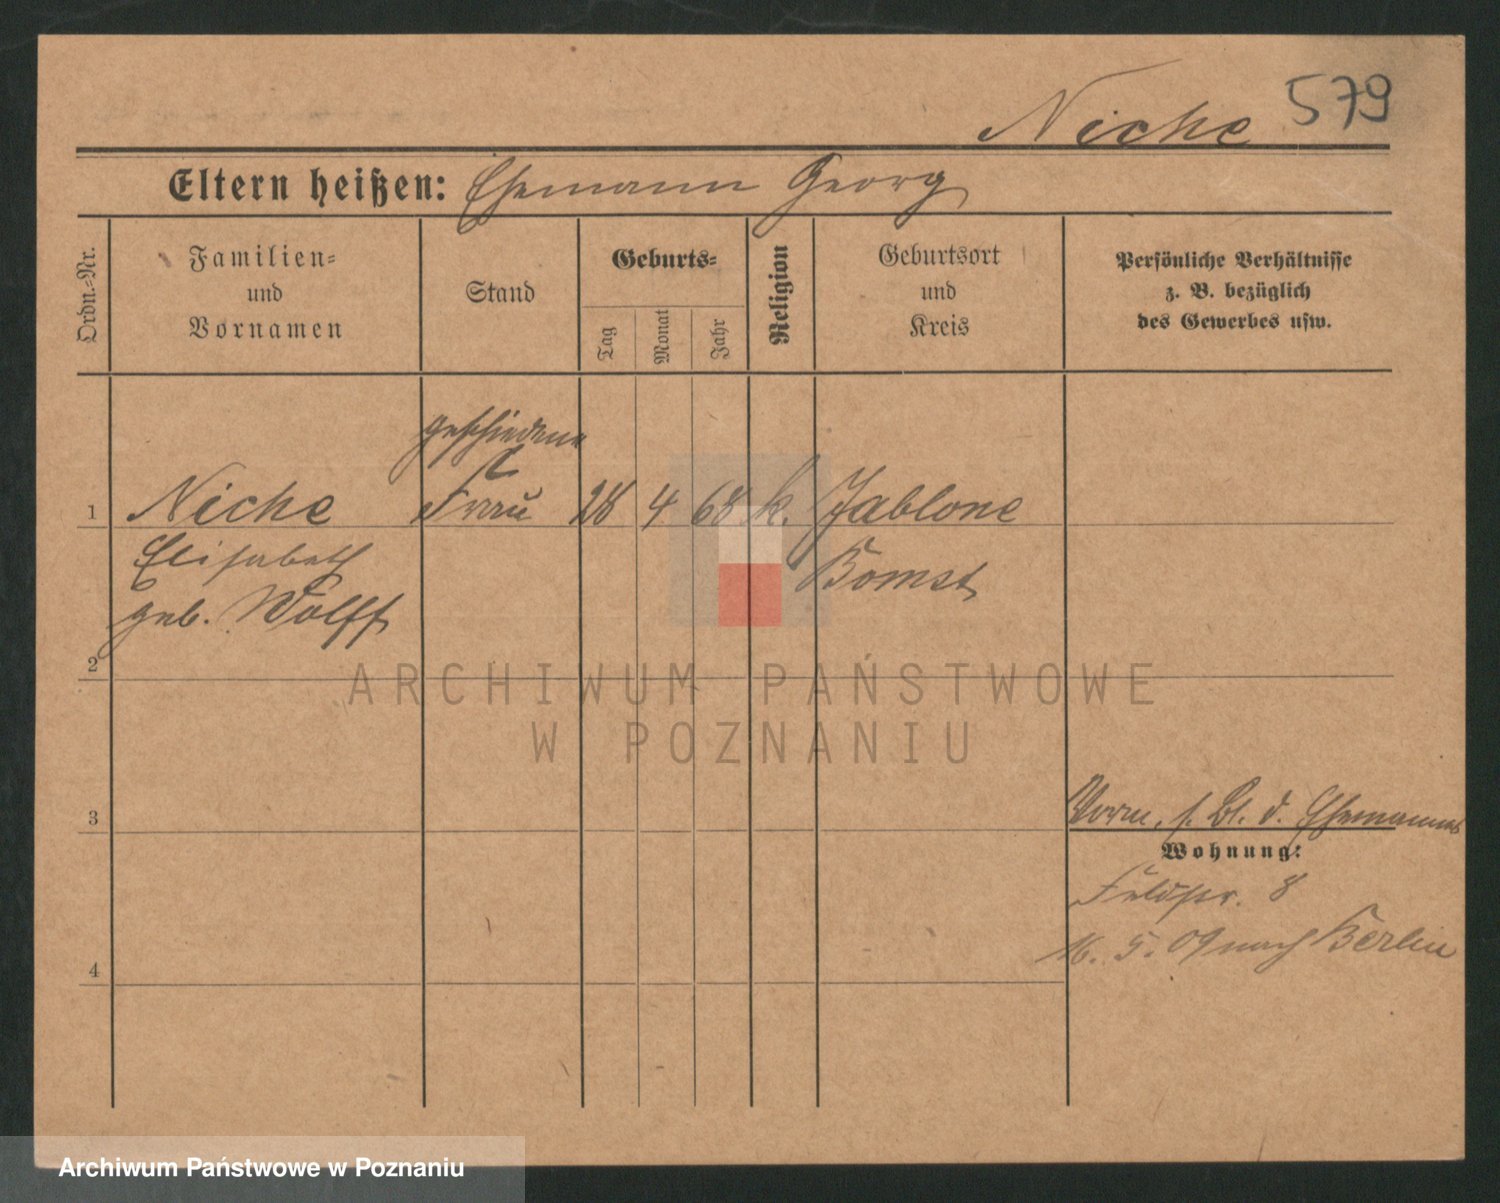 Niche 579
Eltern heißen: Ehemann Georg
Ordn.-Nr.
Familien-
und
Vornamen
Stand
Geburts-
Tag
Monat
Jahr
Religion
Geburtsort
und
Kreis
Persönliche Verhältnisse
z. B. bezüglich
des Gewerbes usw.
geschiedene
1 Niche Frau 28 4 68 k. Jablone
Elisabeth Bomst
geb. Wolff
2
ARCHIWUM PAŃSTWOWE
W POZNANIU
3 Verm. s. Bl. d. Ehemannes
Wohnung:
Feldstr. 8
4 16. 5. 09 nach Berlin
Archiwum Państwowe w Poznaniu